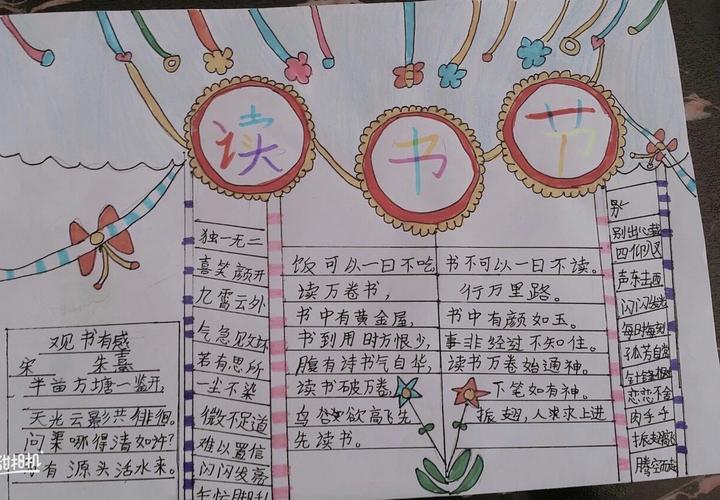 读书节
观书有感
宋 朱熹
半亩方塘一鉴开,
天光云影共徘徊。
问渠哪得清如许?
有源头活水来。
独一无二
喜笑颜开
九霄云外
气急败坏
若有所思
一尘不染
微不足道
难以置信
闪闪发亮
饭可以一日不吃,书不可以一日不读。
读万卷书,行万里路。
书中有黄金屋,书中有颜如玉。
书到用时方恨少,事非经过不知住。
腹有诗书气自华,读书万卷始通神。
读书破万卷,下笔如有神。
鸟欲高飞先振翅,人求上进
先读书。
别
别出心裁
四仰八叉
声东击西
闪闪发光
每时每刻
恋恋不舍
肉乎乎
腾空而起
相机